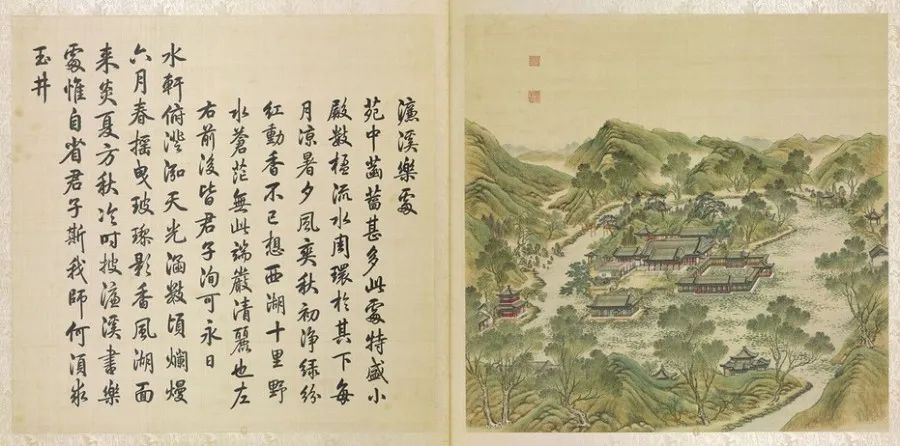 濂溪樂處
苑中菡萏甚多此處特盛小
殿數楹流水周環於其下每
月涼暑夕風爽秋初淨綠紛
紅動香不已想西湖十里野
水蒼茫無此端嚴清麗也左
右前後皆君子洵可永日
水軒俯澄泓天光涵數頃爛熳
六月春搖曳玻瓈影香風湖面
来炎夏方秋冷時披濂溪書樂
處惟自省君子斯我師何須求
玉井